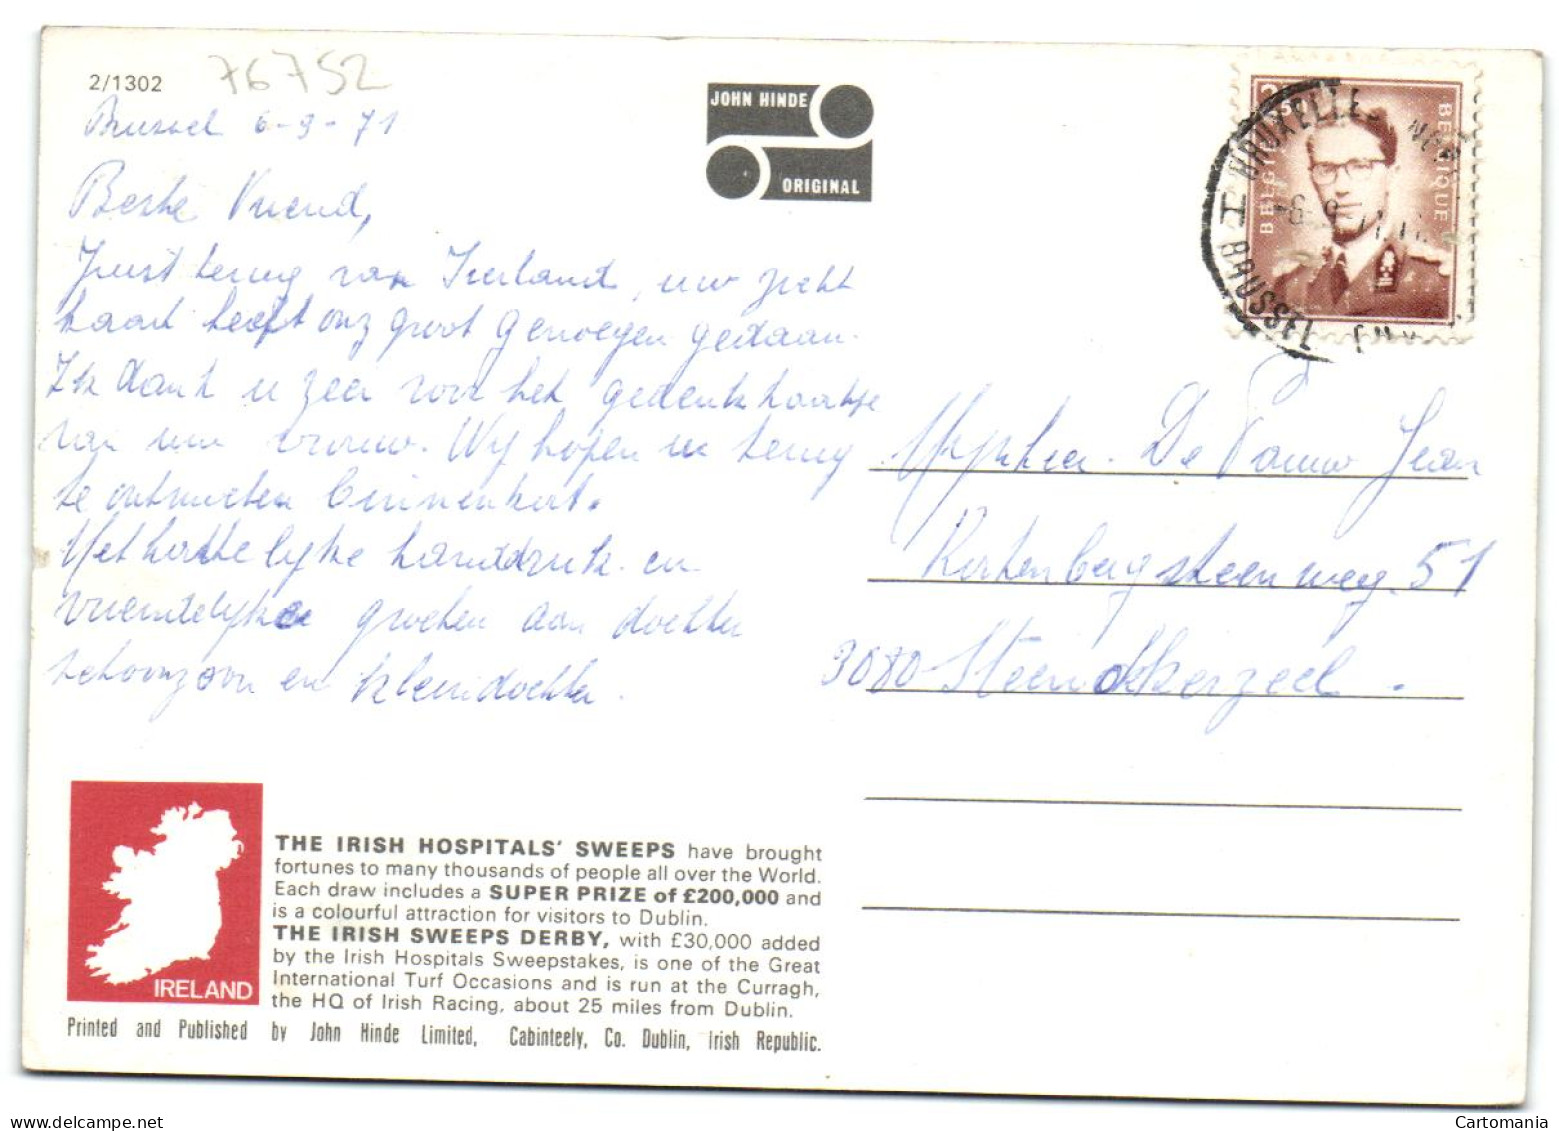 2/1302
76752
Brussel 6-9-71
Beste Vriend,
Juist terug van Ierland, uw zicht
kaart heeft ons groot genoegen gedaan.
Ik dank u zeer voor het gedenkkaartje
van uw vrouw. Wij hopen u terug
te ontmoeten binnenkort.
Met hartelijke handdruk en
vriendelijke groeten aan dochter
schoonzoon en kleindochter.
JOHN HINDE
ORIGINAL
2,50
BELGIE BELGIQUE
BRUXELLES
BRUSSEL
-6-9-71
Mijnheer De Pauw Jean
Kortenbergsteenweg. 51
3080 Steenokkerzeel.
IRELAND
THE IRISH HOSPITALS' SWEEPS have brought
fortunes to many thousands of people all over the World.
Each draw includes a SUPER PRIZE of £200,000 and
is a colourful attraction for visitors to Dublin.
THE IRISH SWEEPS DERBY, with £30,000 added
by the Irish Hospitals Sweepstakes, is one of the Great
International Turf Occasions and is run at the Curragh,
the HQ of Irish Racing, about 25 miles from Dublin.
Printed and Published by John Hinde Limited, Cabinteely, Co. Dublin, Irish Republic.
Cartomania